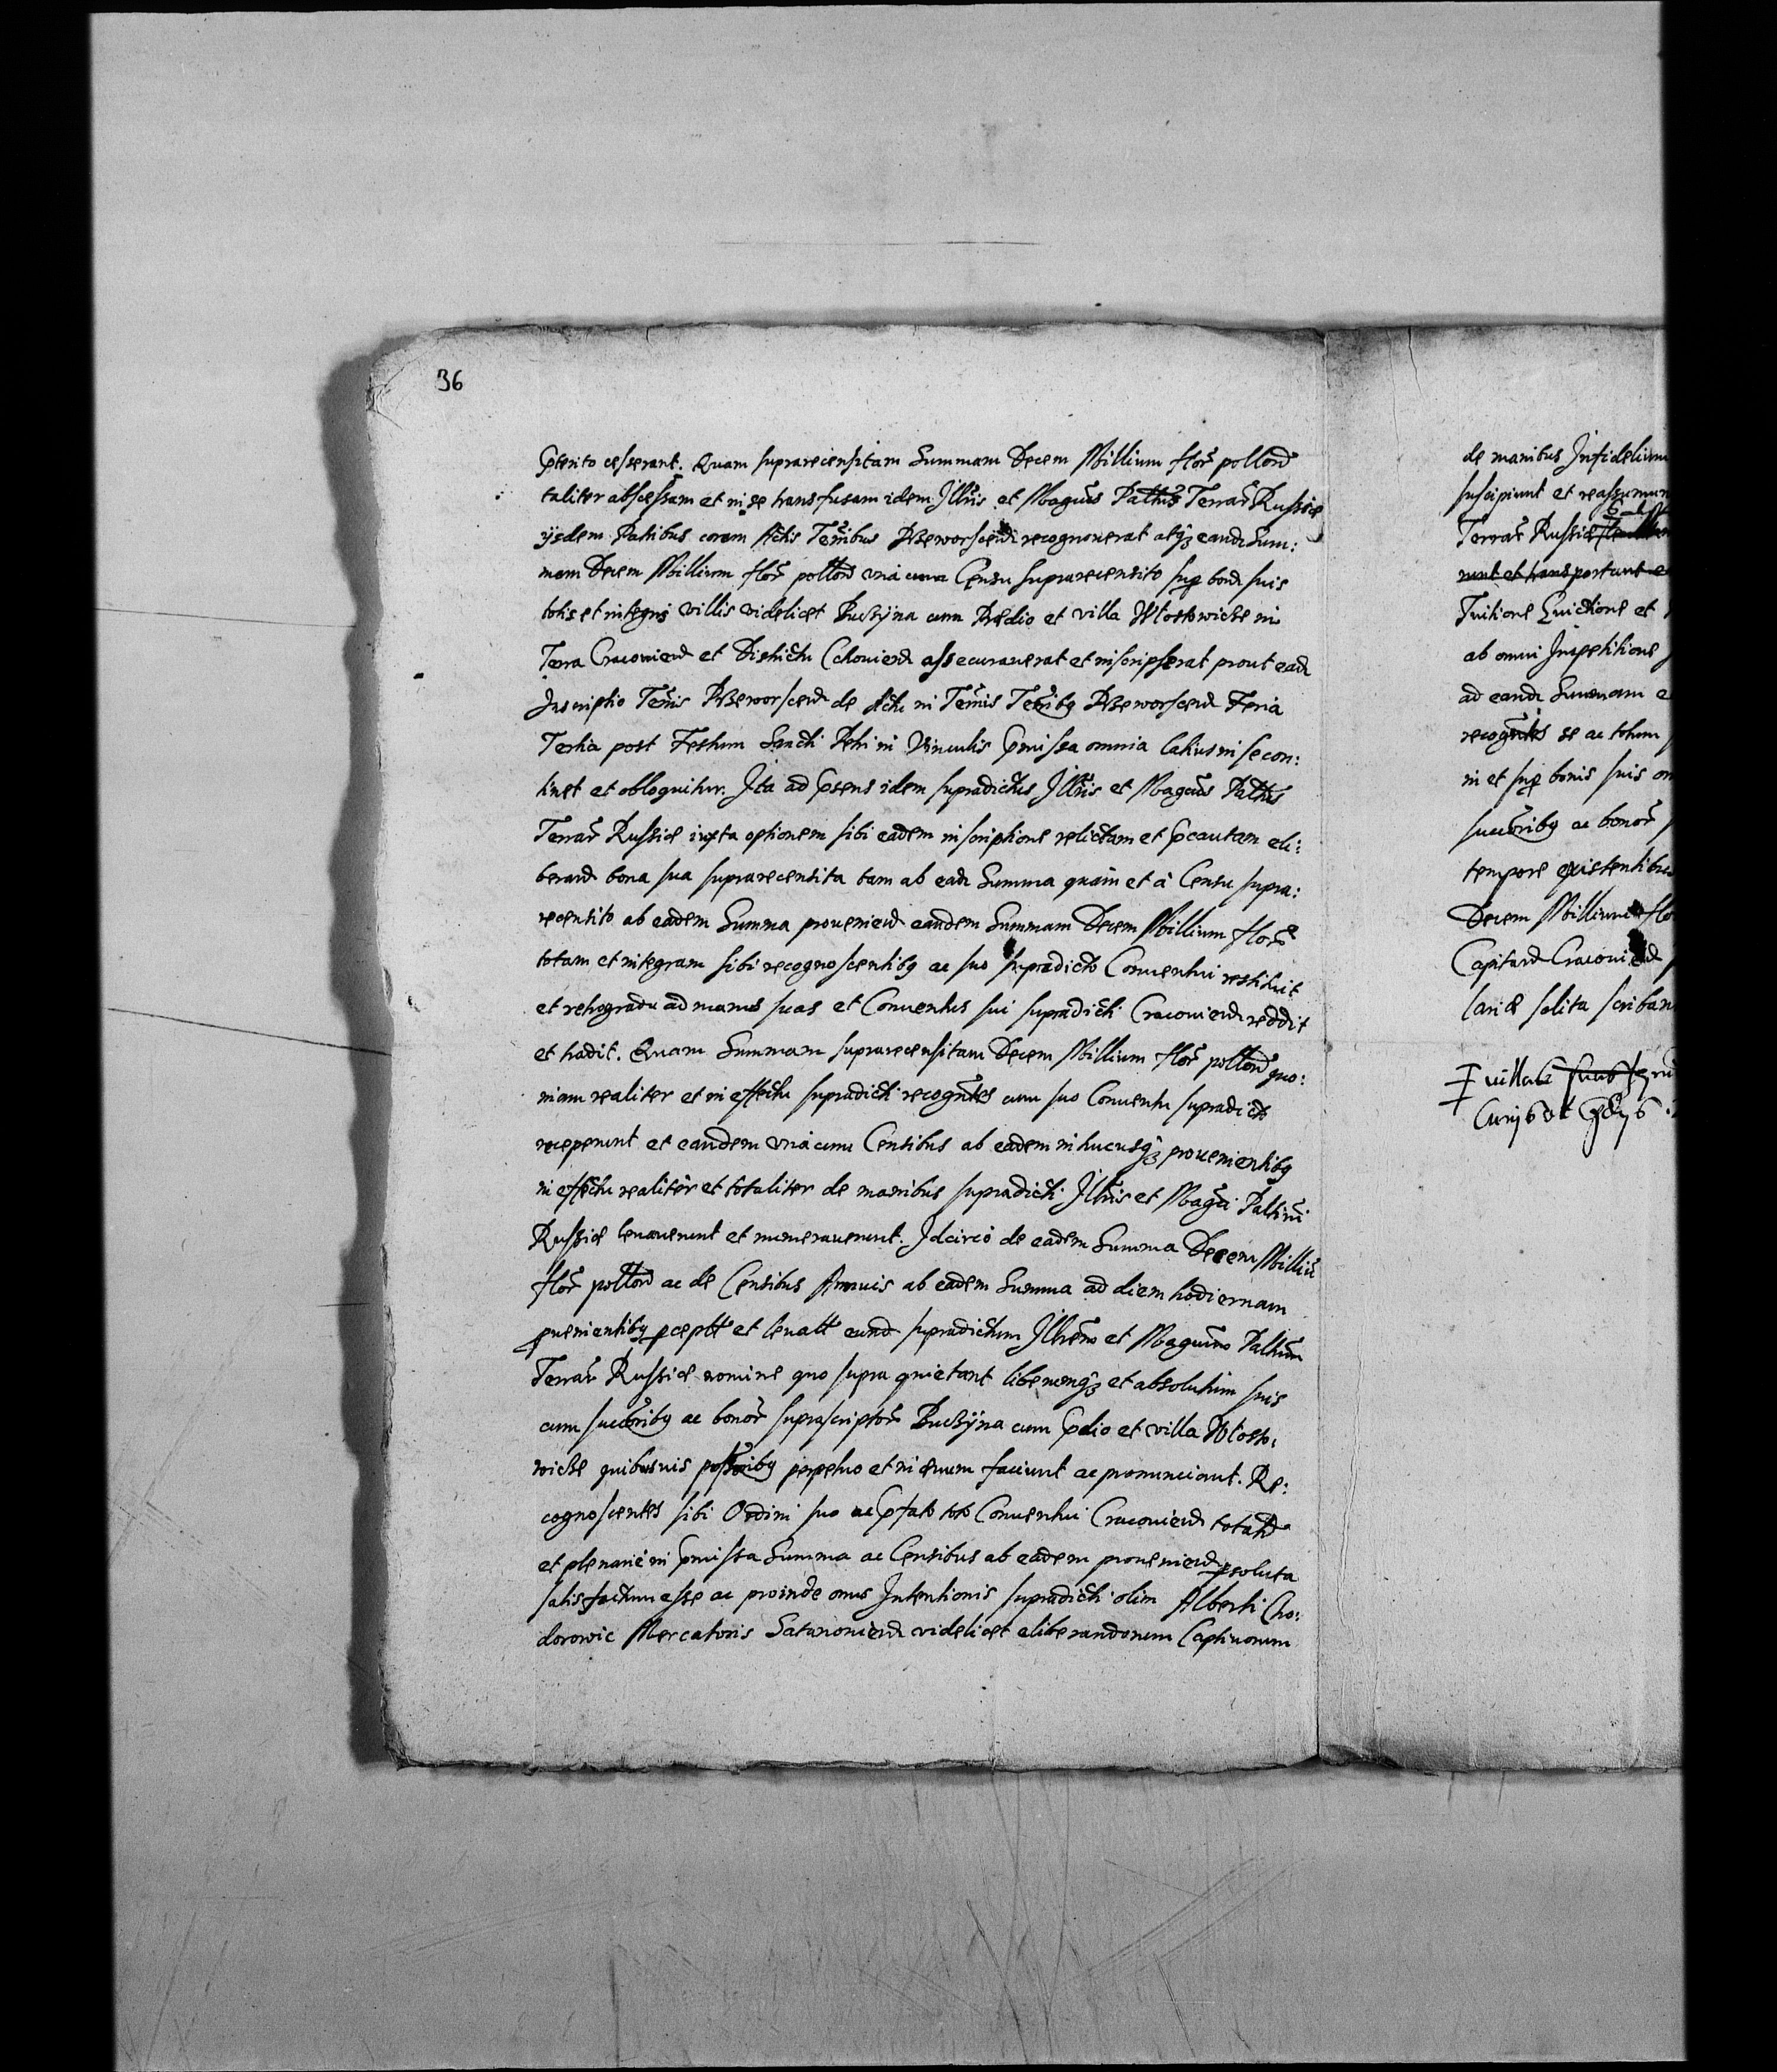 36
Pterito cesserant. Quam suprarecensitam Summam Decem Millium flor pollond
taliter abscessam et in se transfusam idem Jllris et Magcus Pallnus Terrar Russiæ
ijsdem Patribus coram Actis Terribus Przeworscen recognouerat atq3 eand Sum:
mam Decem Millium flor pollond una cum Censu suprarecensito sup bonis suis
totis et integris villis videlicet Buczyna cum Prædio et villa Wlostowicze in
Terra Cracouien et Districtu Czchouien assecurauerat et inscripserat prout ead
Inscriptio Terris Przeworscen de Actu in Terris Terribq Przeworscen Feria
Tertia post Festum Sancti Petri in Vinculis Pmissa omnia latius in se con:
tinet et obloquitur. Ita ad Psens idem supradictus Jllris et Magcus Paltnus
Terrar Russiæ iuxta optionem sibi eadem inscriptione relictam et Pcautam eli:
berand bona sua suprarecensita tam ab ead Summa quàm et à Censu supra:
recensito ab eadem Summa prouenien eandem Summam Decem Millium flor
totam et integram sibi recognoscentibq ac suo supradicto Conuentui restituit
et retrogradu ad manus suas et Conuentus sui supradicti Cracouien reddit
et tradit. Quam Summam suprarecensitam Decem Millium flor pollond quo:
niam realiter et in effectu supradicti recogntes cum suo Conuentu supradicto
receperunt et eandem vnà cum Censibus ab eadem in hucusq3 prouenientibq
in effectu realiter et totaliter de manibus supradicti Jllris et Magci Paltini
Russiæ leuauerunt et numerauerunt. Idcircò de eadem Summa Decem Milliu
flor pollond ac de Censibus Annuis ab eadem Summa ad diem hodiernam
puenientibq pceptt et leuatt eund supradictum Jllrem et Magcum Paltnum
Terrar Russiæ nomine quo supra quietant liberumq3 et absolutum suis
cum succribq ac bonor suprascriptor Buczyna cum Pdio et villa Wlosto:
wicze quibusuis possribq perpetuo et in æuum faciunt ac pronunciant. Re:
cognoscentes sibi Ordini suo ac Pfato toto Conuentui Cracouien totalr
et plenariè in Pmissa Summa ac Censibus ab eadem prouenien psoluta
satisfactum esse ac proinde onus Intentionis supradicti olim Alberti Cho:
dorowic Mercatoris Satanouien videlicet eliberandorum Captiuorum
de manibus Infidelium
suscipiunt et reassumun
Terrar Russiæ
runt et transportant e
Tuitione Euictione et
ab omni Impetitione
ad eand Summam e
recogntes se ac totum
in et sup bonis suis om
succribq ac bonor
tempore existentibus
Decem Millium flo
Capitand Cracouien
lariæ solita scriban
villas